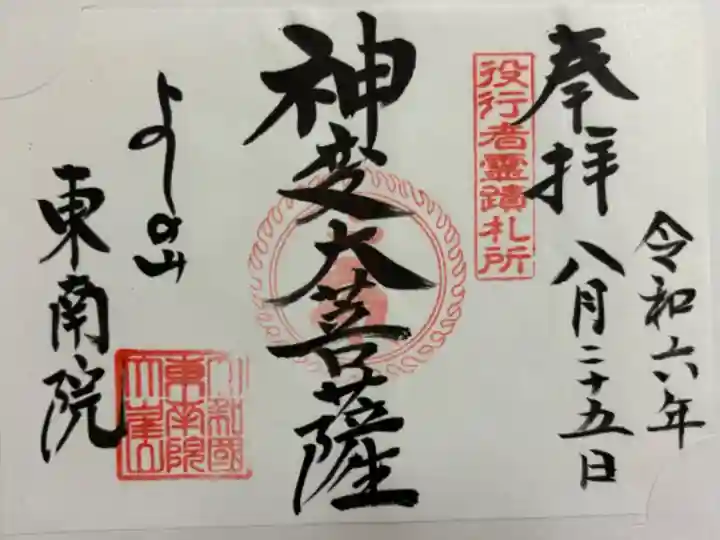 奉拝
令和六年
八月二十五日
役行者霊蹟札所
神変大菩薩
よしの山
東南院
東南院